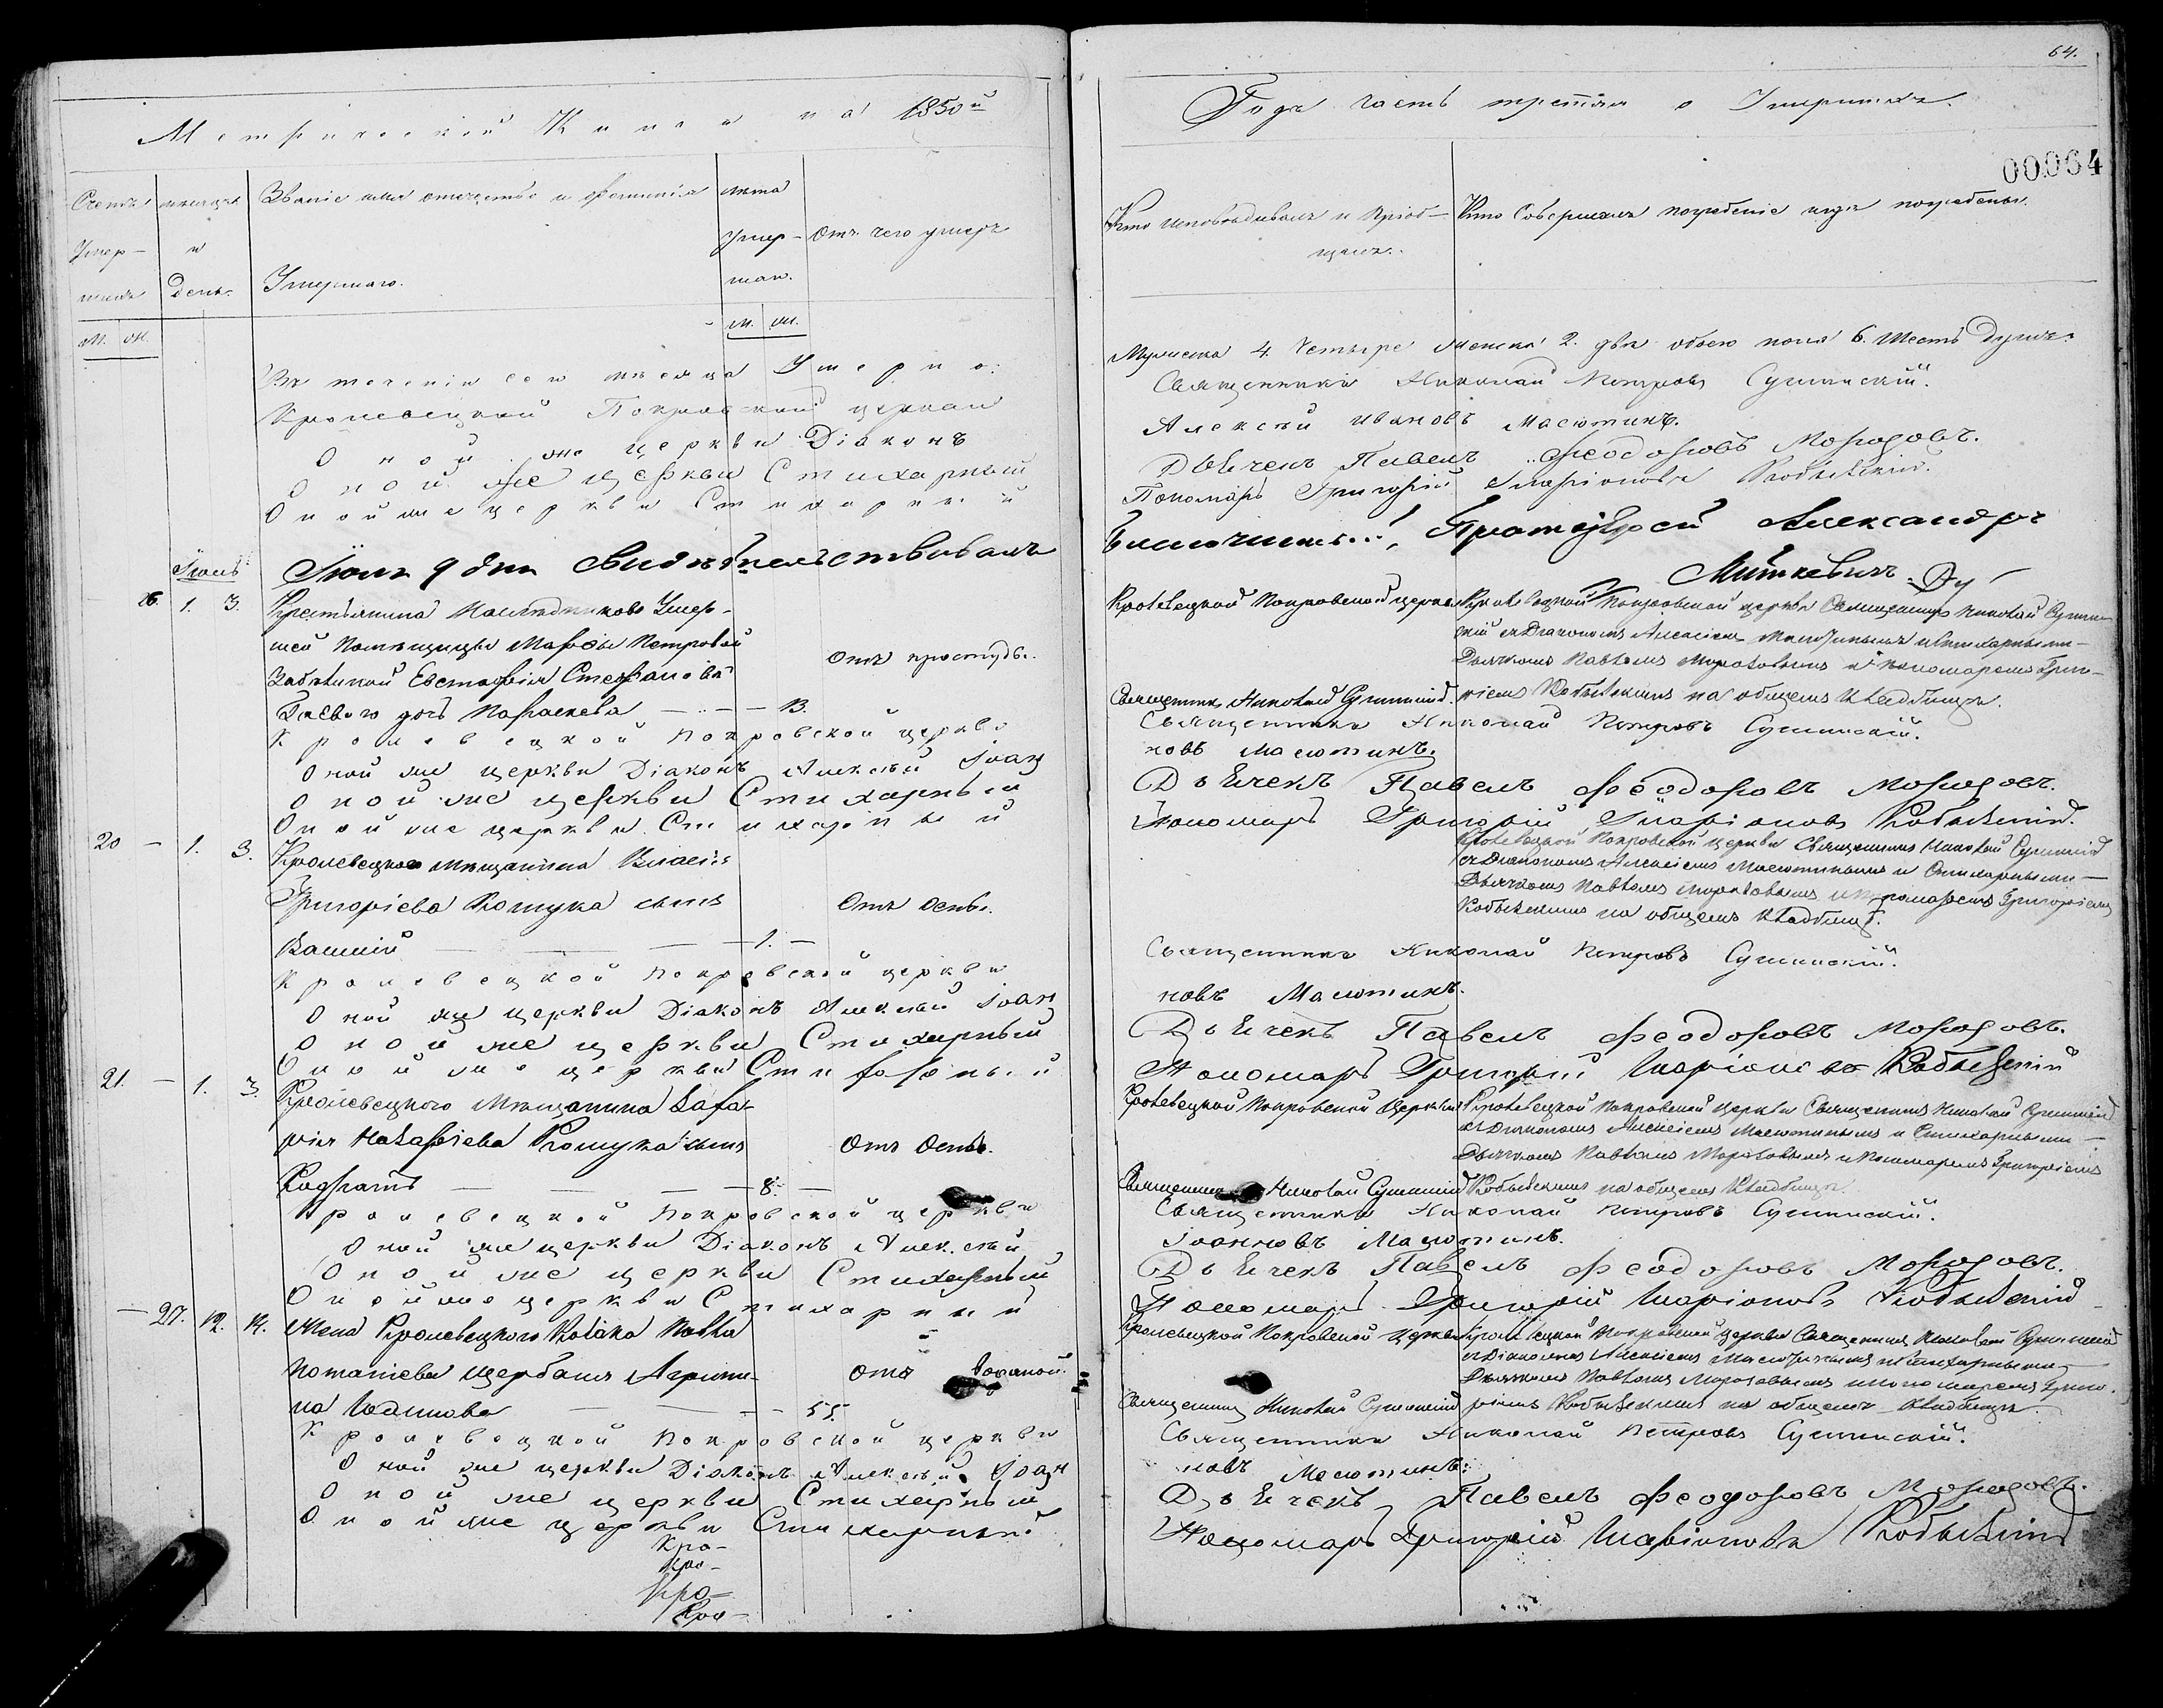 64.
Метрической Книги на 1850й
Года часть третiя о Умершихъ.
00064
Счетъ Умер-шихъ
м. ж.
мѣсяцъ и День.
Званіе имя отечество и фамилія Умершаго.
лѣта Умер-шаго.
м. ж.
Отъ чего умеръ
Кто исповѣдывалъ и пріоб-щалъ.
Кто Совершалъ погребеніе и гдѣ погребены.
Въ теченіи сего мѣсяца Умерло:
Мужеска 4. Четыре женска 2. двѣ обоего пола 6. Шесть Душъ.
Кролевецкой Покровской церкви
Священникъ Николай Петровъ Сушинскій.
Оной же церкви Діаконъ
Алексѣй Ивановъ Масютинъ.
Оной же церкви Стихарный
Дьячекъ Павелъ Феодоровъ Морозовъ.
Оной же церкви Стихарный
Пономарь Григорій Иларіоновъ Кобыжскій.
Іюля 9 дня Свидѣтельствовалъ
Благочинный, Протоіерей Александръ
Миткевичъ.
Іюль
26. 1. 3.
Крестьянина Наслѣдниковъ Умер-
шей Помѣщицы Марфы Петровой
Забѣлиной Евстафія Стефанова
Гаеваго дочь Параскева — 13.
Отъ простуды.
Кролевецкой Покровской церкви
Священникъ Николай Сушинскій.
Кролевецкой Покровской церкви Священникъ Николай Сушин-
скій съ Діакономъ Алексіемъ Масютинымъ и Стихарными —
Дьячкомъ Павломъ Морозовымъ и пономаремъ Григо-
ріемъ Кобыжскимъ на общемъ Кладбищѣ.
Кролевецкой Покровской церкви
Священникъ Николай Петровъ Сушинскій.
Оной же церкви Діаконъ Алексѣй Іоан
новъ Масютинъ.
Оной же церкви Стихарный
Дьячекъ Павелъ Феодоровъ Морозовъ.
Оной же церкви Стихарный
Пономарь Григорій Иларіоновъ Кобыжскій.
20 — 1. 3.
Кролевецкаго мѣщанина Власія
Григоріева Кошука сынъ
Василій — 1. —
Отъ Оспы.
Кролевецкой Покровской церкви Священникъ Николай Сушинскій
съ Діакономъ Алексіемъ Масютинымъ и Стихарными —
Дьячкомъ Павломъ Морозовымъ и пономаремъ Григоріемъ
Кобыжскимъ на общемъ Кладбищѣ.
Кролевецкой Покровской церкви
Священникъ Николай Петровъ Сушинскій.
Оной же церкви Діаконъ Алексѣй Іоан
новъ Масютинъ.
Оной же церкви Стихарный
Дьячекъ Павелъ Феодоровъ Морозовъ.
Оной же церкви Стихарный
Пономарь Григорій Иларіоновъ Кобыжскій
21. — 1. 3.
Кролевецкого Мѣщанина Заха-
рія Назаріева Кошука сынъ
Кодратъ — 8. —
Отъ Оспы.
Кролевецкой Покровской Церкви
Священникъ Николай Сушинскій
Кролевецкой Покровской Церкви Священникъ Николай Сушинскій
съ Діакономъ Алексіемъ Масютинымъ и Стихарными —
Дьячкомъ Павломъ Морозовымъ и Пономаремъ Григоріемъ
Кобыжскимъ на общемъ Кладбищѣ.
Кролевецкой Покровской церкви
Священникъ Николай Петровъ Сушинскій.
Оной же церкви Діаконъ Алексѣй
Іоанновъ Масютинъ.
Оной же церкви Стихарный
Дьячекъ Павелъ Феодоровъ Морозовъ.
Оной же церкви Стихарный
Пономарь Григорій Иларіоновъ Кобыжскій
— 27. 12. 14.
Жена Кролевецкого Козака Павла
Потапіева Щербака Агрипи-
на — 55.
Отъ
Кролевецкой Покровской Церкви
Священникъ Николай Сушинскій
Кролевецкой Покровской Церкви Священникъ Николай Сушинскій
съ Діакономъ Алексіемъ Масютинымъ и Стихарными —
Дьячкомъ Павломъ Морозовымъ и пономаремъ Григо-
ріемъ Кобыжскимъ на общемъ Кладбищѣ.
Кролевецкой Покровской церкви
Священникъ Николай Петровъ Сушинскій.
Оной же церкви Діаконъ Алексѣй Іоан
новъ Масютинъ.
Оной же церкви Стихарный
Дьячекъ Павелъ Феодоровъ Морозовъ.
Оной же церкви Стихарный
Пономарь Григорій Иларіоновъ Кобыжскій
Кро-
Кро-
Кро-
Кро-